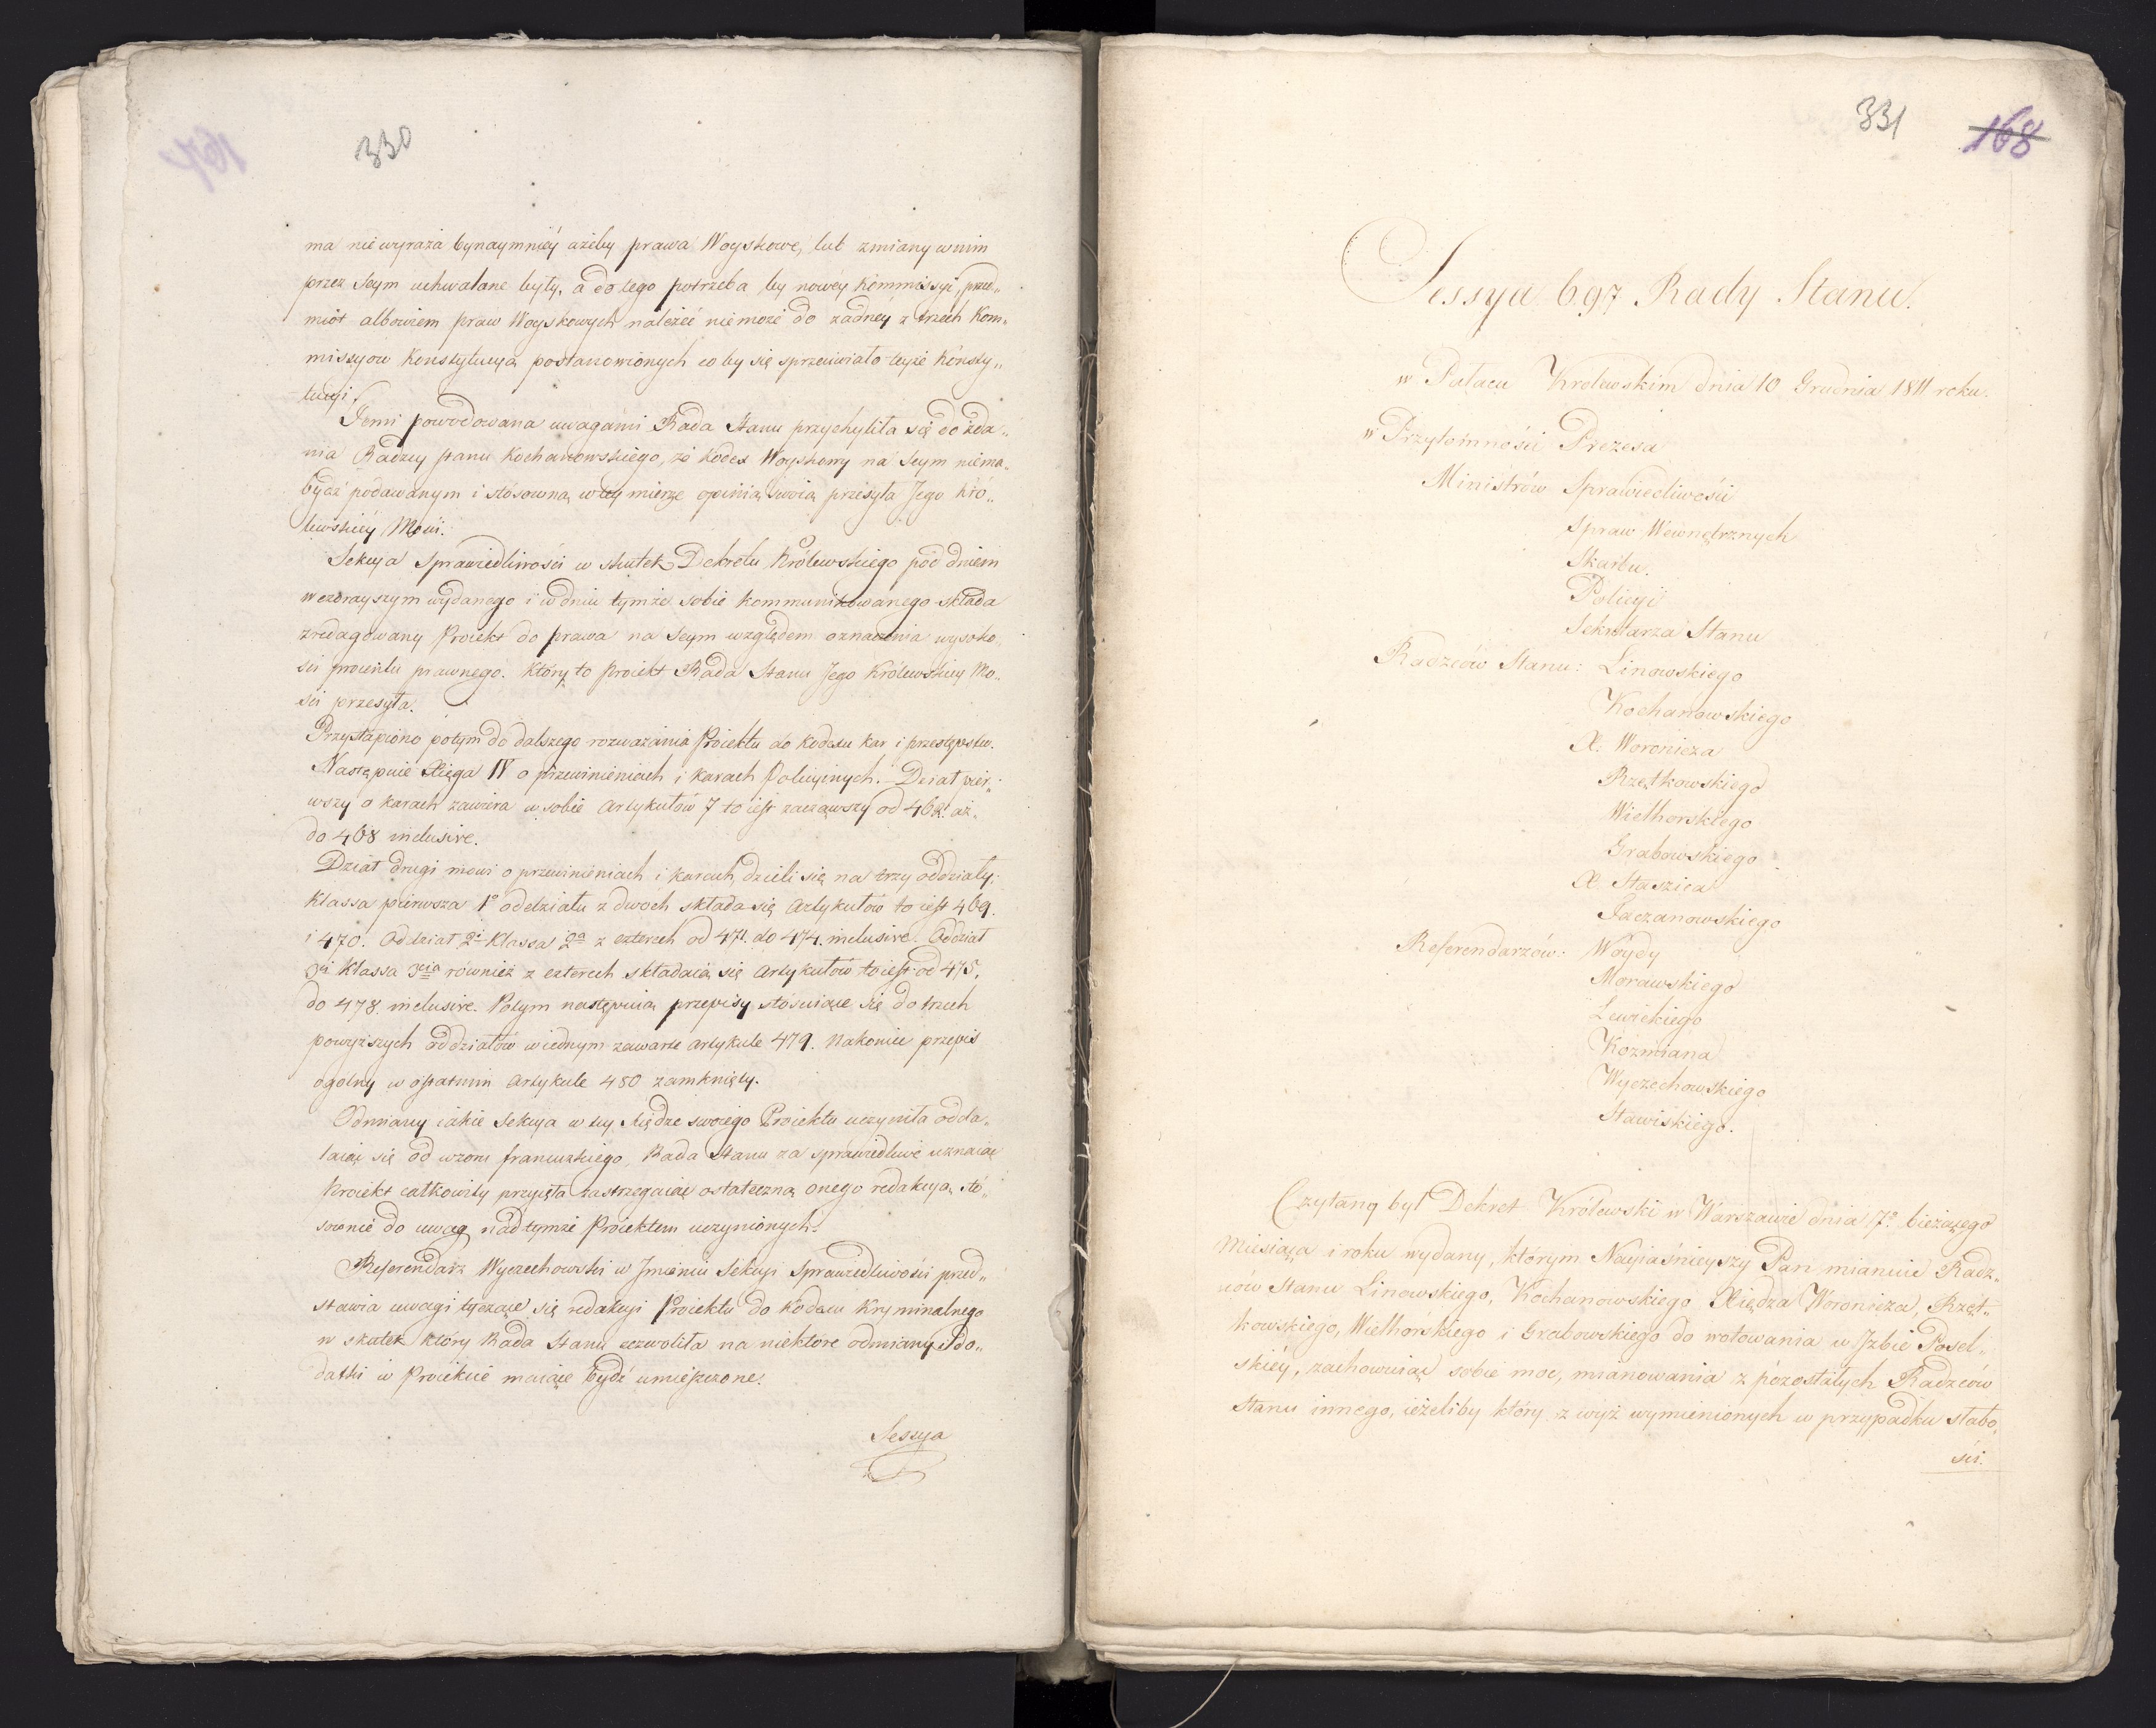 330
ma nie wyraża bynaymniéy ażeby prawa Woyskowe, lub zmiany w nim
przez Seym uchwalane były, a do tego potrzeba by nowéy Kommissyi, prze„
miót albowiem praw Woyskowych należéć nie może do żadnéy z trzech Kom„
missyow Konstytucyą postanowionych co by się sprzeciwiało teyże Konsty„
tucyi.
Temi powodowana uwagami Rada Stanu przychyliła się do zda„
nia Radzcy stanu Kochanowskiego, że kodex Woyskowy na Seym nie ma„
bydź podawanym i stósowną w tey mierze opinią swoią przesyła Jego Kró„
lewskiéy Mości.
Sekcya Sprawiedliwości w skutek Dekretu Królewskiego pod dniem
wczorayszym wydanego i w dniu tymże sobie kommunikowanego składa
zredagowany Proiekt do prawa na Seym względem oznaczenia wysoko„
ści procentu prawnego. Który to proiekt Rada Stanu Jego Królewskiey Mo„
ści przesyła.
Przystąpiono potym do dalszego rozważania Proiektu do kodexu kar i przestępstw.
Następuie Xięga IV o przewinieniach i karach Policyinych. Dział pier„
wszy o karach zawiera w sobie artykułów 7 to iest zacząwszy od 462. aż„
do 468 inclusive.
Dział drugi mówi o przewinieniach i karach, dzieli się na trzy oddziały.
Klassa pierwsza 1º oddziału z dwóch składa się Artykułów to iest 469.
i 470. Oddział 2i Klassa 2a z czterech od 471. do 474. inclusive. Oddział
3i Klassa 3cia również z czterech składaią się artykułów to iest od 475.
do 478. inclusive. Potym następuią przepisy stósuiące się do trzech
powyższych oddziałów w iednym zawarte artykule 479. Nakoniec przepis
ogólny w ostatnim artykule 480 zamknięty.
Odmiany iakie Sekcya w tey Xiędze swoiego Proiektu uczyniła odda„
laiąc się od wzoru francuzkiego, Rada Stanu za sprawiedliwe uznaiąc
Proiekt całkowity przyięła zastrzegaiąc ostateczną onego redakcyą, stó„
sownie do uwag nad tymże Proiektem uczynionych.
Referendarz Wyczechowski w Jmieniu Sekcyi Sprawiedliwości przed„
stawia uwagi tyczące się redakcyi Proiektu do kodexu Kryminalnego
w skutek który Rada Stanu zezwoliła na niektore odmiany i do„
datki w Proiekcie maiące bydź umieszczone.
Sessya
331
168
Sessya 697 Rady Stanu.
w Pałacu Krolewskim dnia 10 Grudnia 1811 roku.
w Przytomności Prezesa
Ministrów Sprawiedliwości
Spraw Wewnętrznych
Skarbu.
Policyi
Sekretarza Stanu
Radzców Stanu: Linowskiego
Kochanowskiego
X. Woronicza
Rzętkowskiego
Wielhorskiego
Grabowskiego
X. Staszica
Jaczanowskiego
Referendarzów: Woydy
Morawskiego
Lewickiego
Kozmiana
Wyczechowskiego
Stawiskiego.
Czytany był Dekret Królewski w Warszawie dnia 7º bieżącego
Miesiąca i roku wydany, którym Nayiaśnieyszy Pan mianuie Radz„
ców Stanu Linowskiego, Kochanowskiego Xiędza Woronicza, Rzęt„
kowskiego, Wielhorskiego i Grabowskiego do wotowania w Jzbie Posel„
skiéy, zachowuiąc sobie moc, mianowania z pozostałych Radzców
Stanu innego, ieżeliby który z wyż wymienionych w przypadku słabo„
ści.